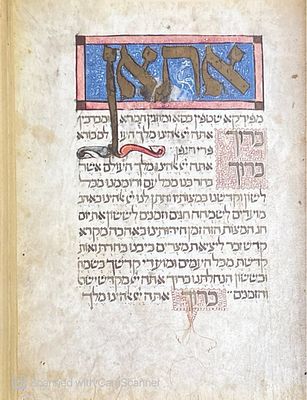 אתאן
שטפין כסא ומוזגין חמרא ומברכין
ברוך אתה יי אלהינו מלך בורא
פרי הגפן
ברוך אתה יי אלהינו מלך העולם אשר
בחר בנו מכל עם ורוממנו מכל
לשון וקדשנו במצותיו ותתן לנו יי אלהינו
מועדים לשמחה חגים וזמנים לששון את יום
חג המצות הזה זמן חירותינו באהבה מקרא
קדש זכר ליציאת מצרים כי בנו בחרת ואותנו
קדשת מכל העמים ומועדי קדשך בשמחה
ובששון הנחלתנו ברוך אתה יי מקדש
והזמנים ברוך אתה יי אלהינו מלך
Scanned with CamScanner